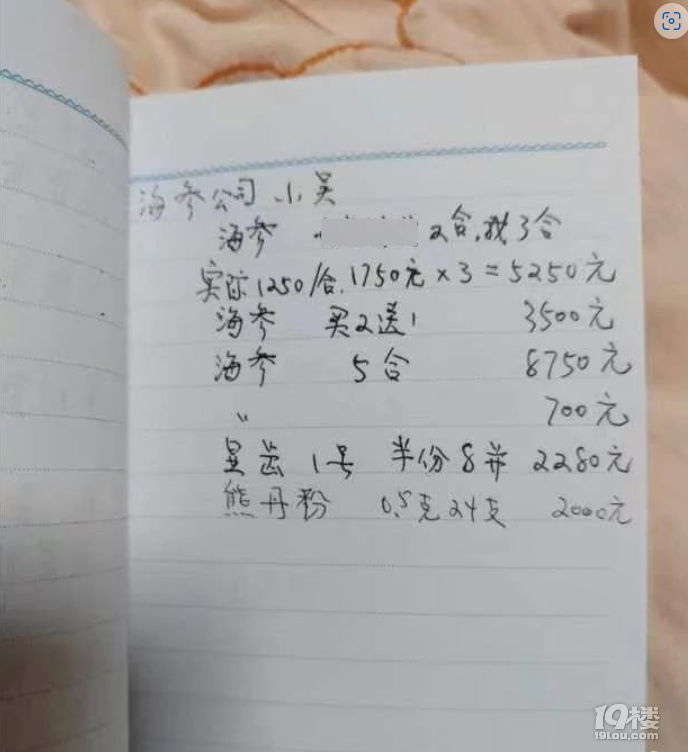 海参公司 小吴
海参 2合,我3合
实际1250/合,1750元×3=5250元
海参 买2送1 3500元
海参 5合 8750元
〃 700元
1号 半份8并 2280元
熊丹粉 0.5克24支 2000元
19楼
19lou.com